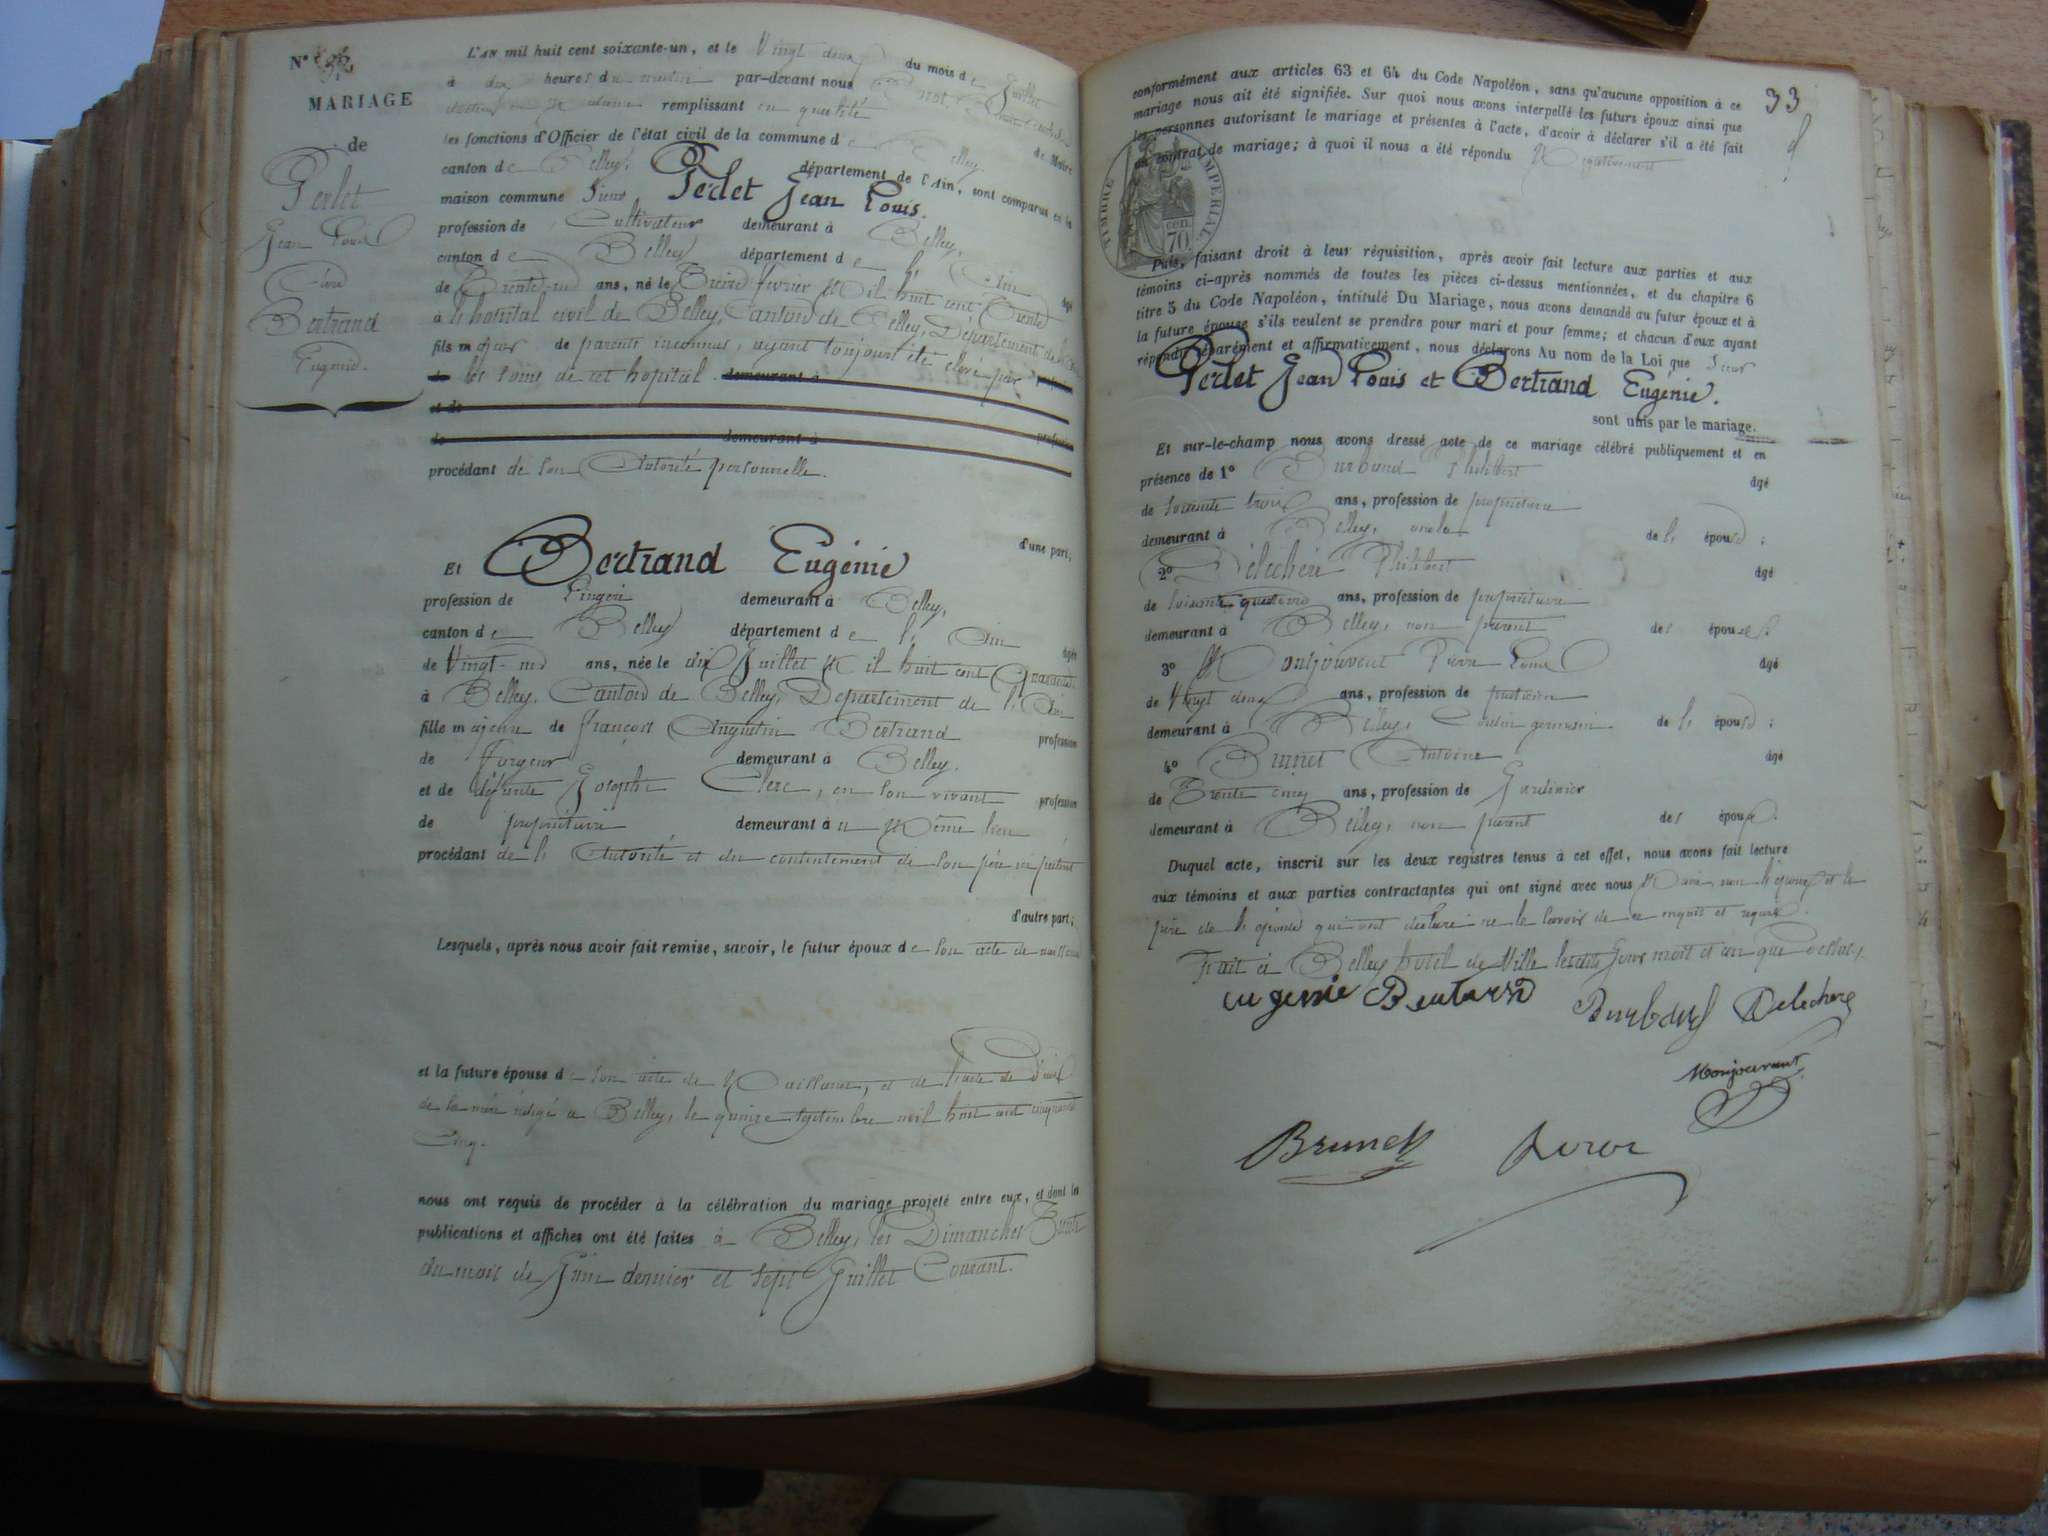 N°
MARIAGE
de
Perlet
Jean Louis
Avec
Bertrand
Eugénie.
L'AN mil huit cent soixante-un, et le Vingt deux du mois de Juillet
à dix heures du matin par-devant nous
remplissant en qualité de Maire
les fonctions d'Officier de l'état civil de la commune de Belley
canton de Belley, département de l'Ain, sont comparus en la
maison commune Sieur Perlet Jean Louis.
profession de Cultivateur demeurant à Belley,
canton de Belley département de l'Ain âgé
de Trente-un ans, né le Treize février Mil huit cent Trente
à l'hopital civil de Belley, Canton de Belley, Département de l'Ain
fils majeur de parents inconnus, ayant toujours été élevé par
les soins de cet hopital demeurant à
et de
de demeurant à profession
procédant de son Autorité personnelle.
d'une part;
Et Bertrand Eugénie
profession de Lingère demeurant à Belley,
canton de Belley département de l'Ain âgée
de Vingt-un ans, née le dix Juillet Mil huit cent Quarante
à Belley, Canton de Belley, Département de l'Ain
fille majeure de françois Augustin Bertrand profession
de Forgeur demeurant à Belley.
et de défunte Josephte Clerc, en son vivant profession
de propriétaire demeurant à u Même lieu
procédant de l'Autorité et du consentement de son père ici présent
d'autre part;
Lesquels, après nous avoir fait remise, savoir, le futur époux de son acte de naissance
et la future épouse de son acte de Naissance, et de l'acte de décès
de la mère rédigé à Belley, le quinze septembre mil huit cent cinquante
Cinq.
nous ont requis de procéder à la célébration du mariage projeté entre eux, et dont les
publications et affiches ont été faites à Belley, les Dimanches Trente
du mois de Juin dernier et sept Juillet Courant.
33
conformément aux articles 63 et 64 du Code Napoléon, sans qu'aucune opposition à ce
mariage nous ait été signifiée. Sur quoi nous avons interpellé les futurs époux ainsi que
les personnes autorisant le mariage et présentes à l'acte, d'avoir à déclarer s'il a été fait
un contrat de mariage; à quoi il nous a été répondu Négativement
TIMBRE IMPERIAL
cen. 70
Puis, faisant droit à leur réquisition, après avoir fait lecture aux parties et aux
témoins ci-après nommés de toutes les pièces ci-dessus mentionnées, et du chapitre 6
titre 5 du Code Napoléon, intitulé Du Mariage, nous avons demandé au futur époux et à
la future épouse s'ils veulent se prendre pour mari et pour femme; et chacun d'eux ayant
répondu séparément et affirmativement, nous déclarons Au nom de la Loi que Sieur
Perlet Jean Louis et Bertrand Eugénie.
sont unis par le mariage.
Et sur-le-champ nous avons dressé acte de ce mariage célébré publiquement et en
présence de 1° Burband Philibert âgé
de soixante trois ans, profession de propriétaire
demeurant à Belley, oncle de l'épouse;
2° Délechère Philibert âgé
de soixante quatorze ans, profession de propriétaire
demeurant à Belley, non parent des époux.
3° Monjouvent Pierre Louis âgé
de Vingt deux ans, profession de praticien
demeurant à Belley, Cousin germain de l'épouse;
4° Brunet Antoine âgé
de Trente cinq ans, profession de Jardinier
demeurant à Belley, non parent des époux.
Duquel acte, inscrit sur les deux registres tenus à cet effet, nous avons fait lecture
aux témoins et aux parties contractantes qui ont signé avec nous Maire, non l'époux et le
père de l'épouse qui ont déclaré ne le savoir de ce enquis et requis.
Fait à Belley hôtel de Ville lesdits Jour mois et an que dessus.
eugenie Bertrand Burband Delechere
Monjouvent
Brunet